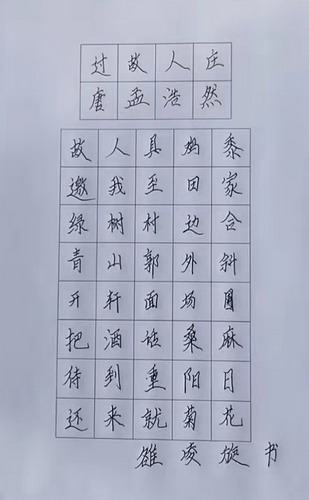 过故人庄
唐孟浩然
故人具鸡黍
邀我至田家
绿树村边合
青山郭外斜
开轩面场圃
把酒话桑麻
待到重阳日
还来就菊花
凌旋 书